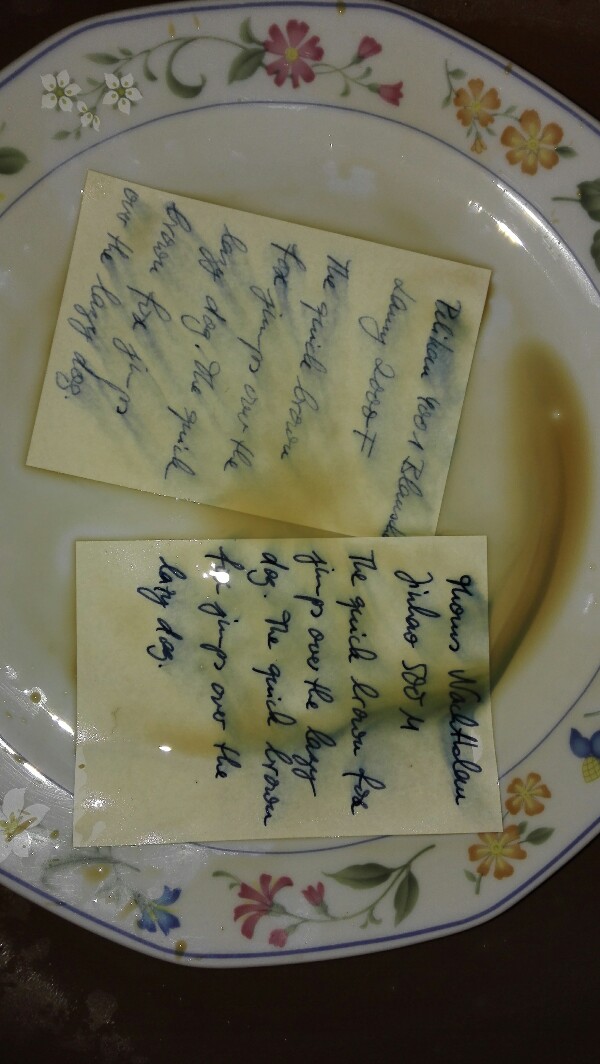 Pelikan 4001 Blausch
Lamy 2000 F
The quick brown
fox jumps over the
lazy dog. The quick
brown fox jumps
over the lazy dog.
Thorns
Jinhao 500 M
The quick brown fox
jumps over the lazy
dog. The quick brown
fox jumps over the
lazy dog.